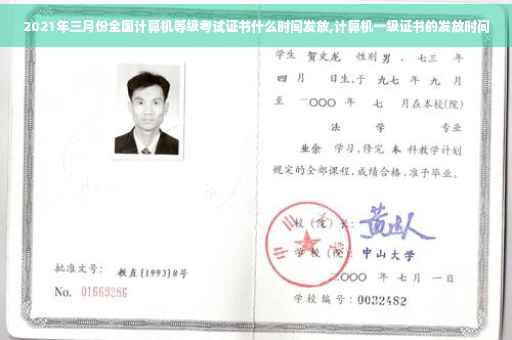 2021年三月份全国计算机等级考试证书什么时间发放,计算机一级证书的发放时间
学生 贺文龙 性别 男 、七三 年
四 月 日生,于 九七 年 九 月
至 二〇〇〇 年 七 月在本校(院)
法 学 专业
业余 学习,修完 本 科教学计划
规定的全部课程,成绩合格,准予毕业。
校(院)长:
学 校(院): 中山大学
二〇〇〇 年 七 月 一 日
学校编号:0032482
批准文号: 教直[1993]8号
No. 01669286
中山大学